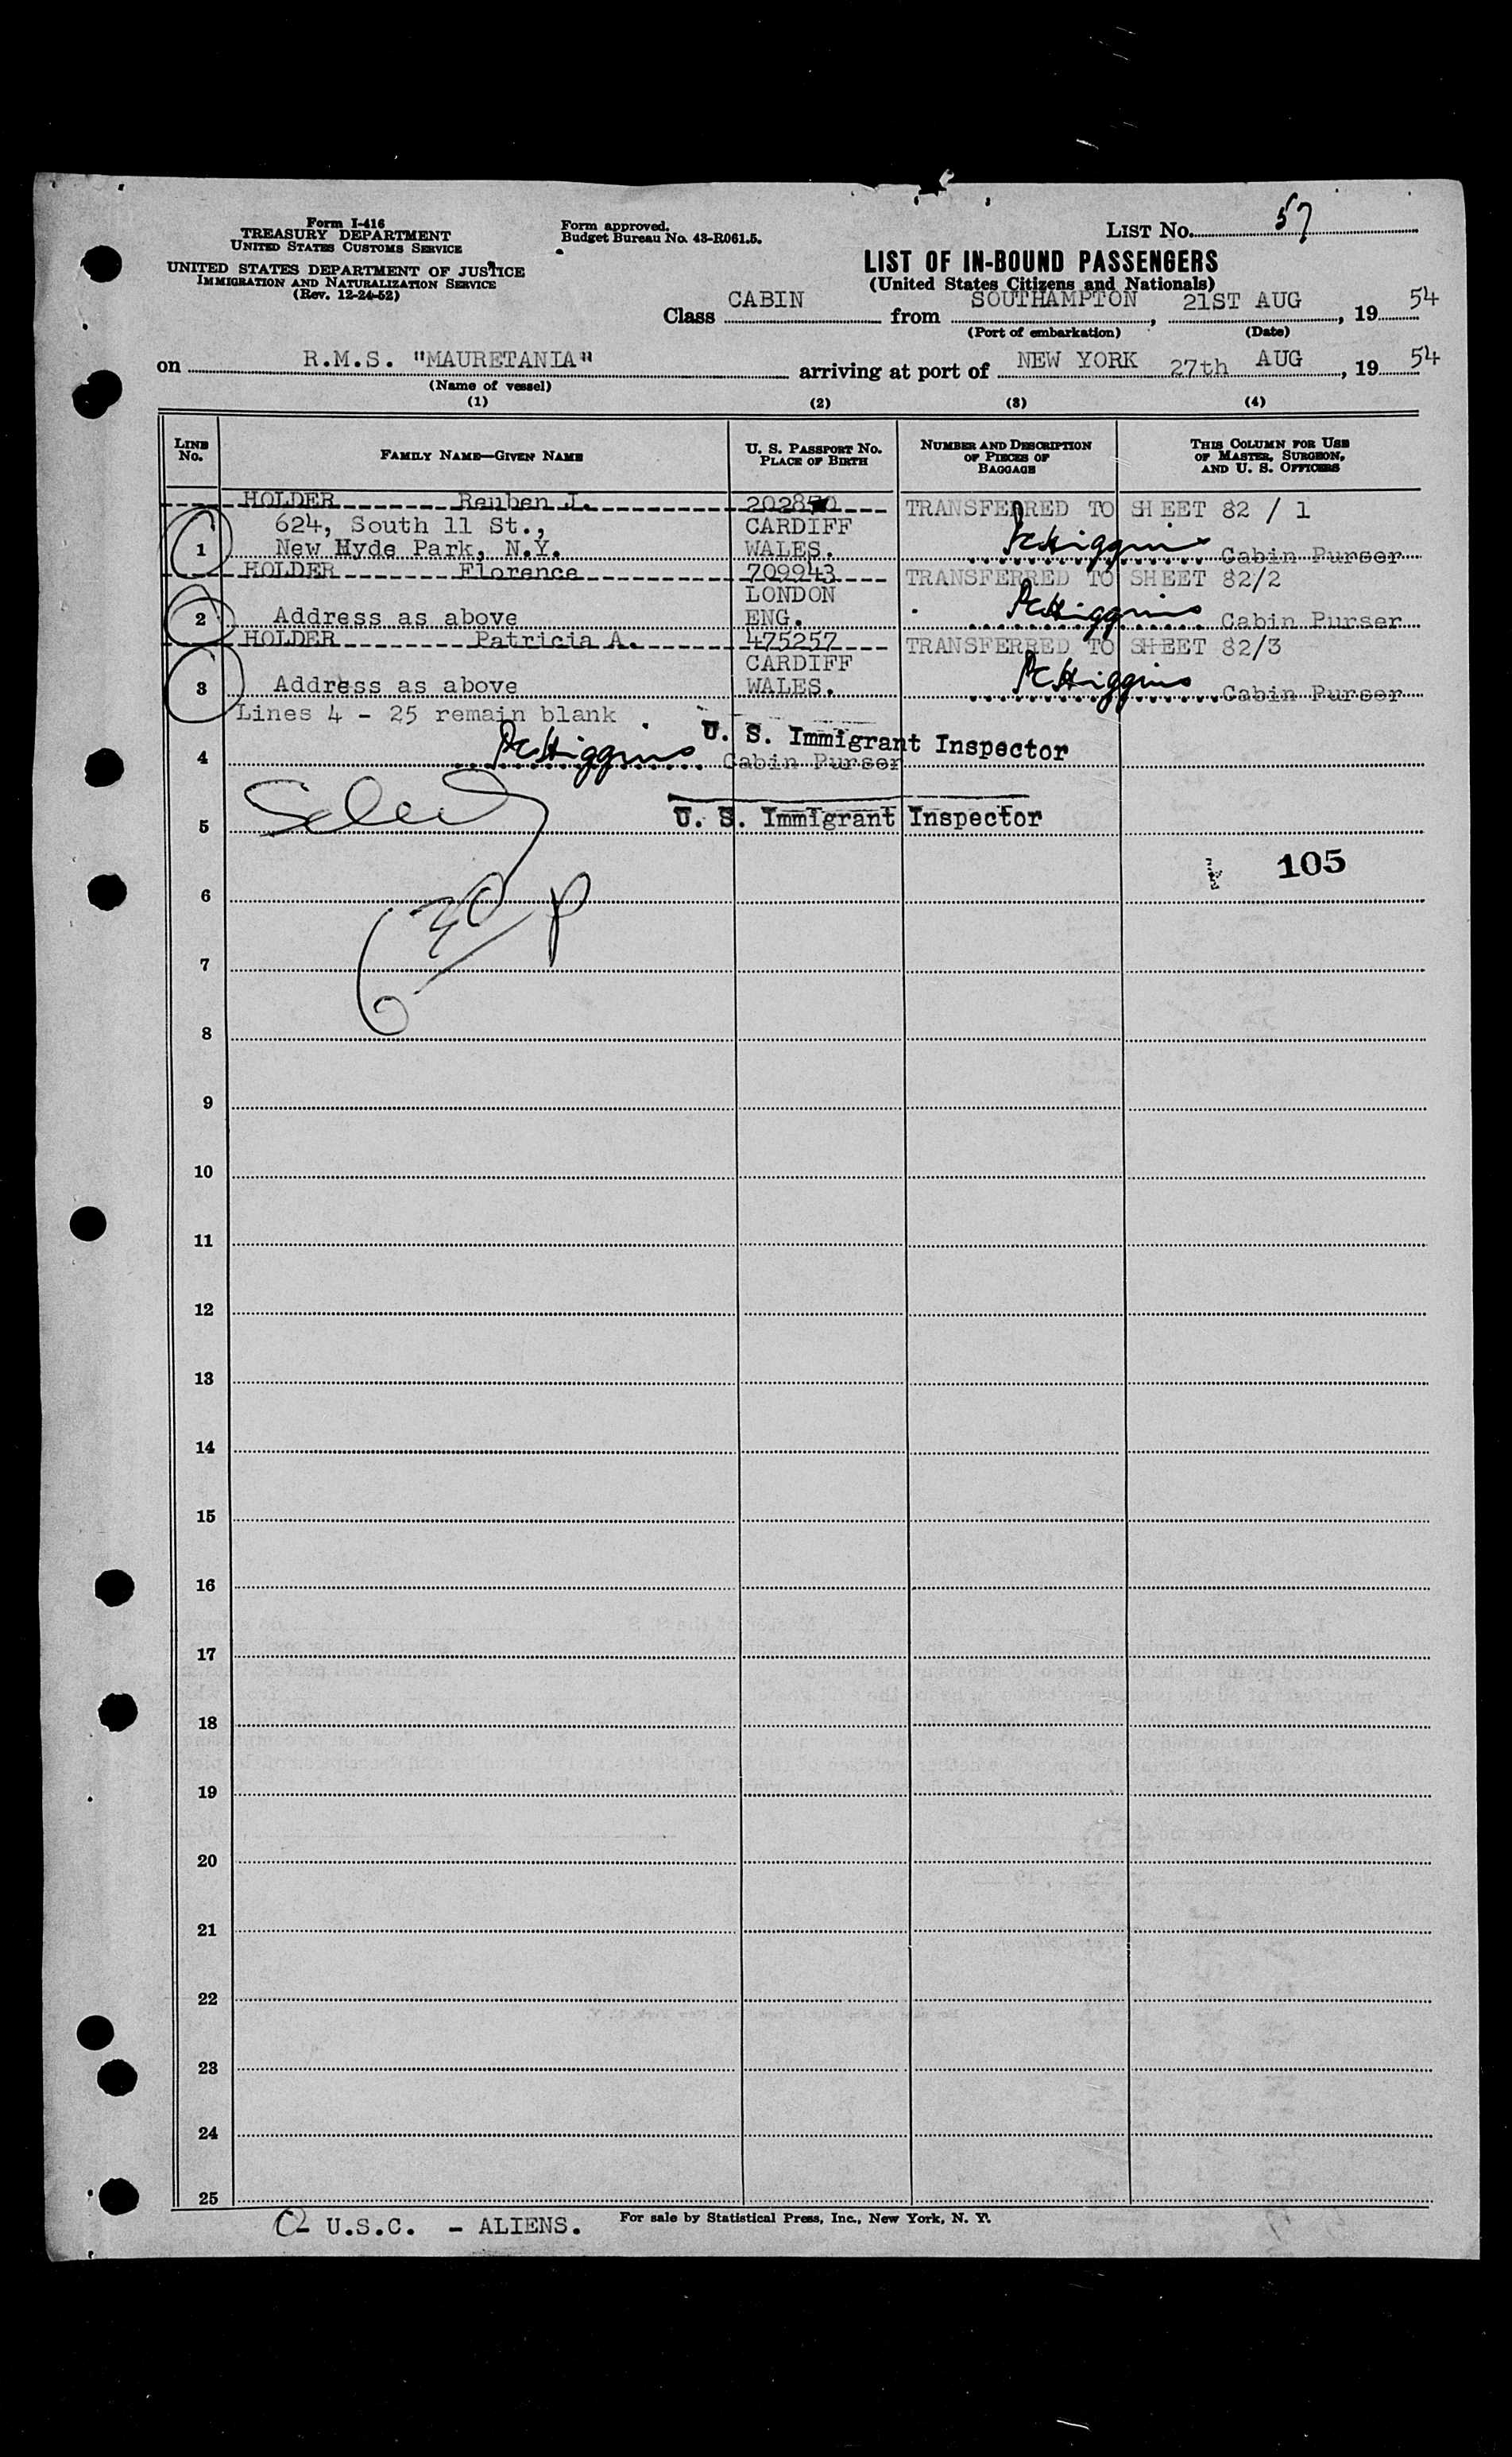 Form I-416
TREASURY DEPARTMENT
UNITED STATES CUSTOMS SERVICE
UNITED STATES DEPARTMENT OF JUSTICE
IMMIGRATION AND NATURALIZATION SERVICE
(Rev. 12-24-52)
Form approved.
Budget Bureau No. 43-R061.5.
LIST No. 57
LIST OF IN-BOUND PASSENGERS
(United States Citizens and Nationals)
Class CABIN from SOUTHAMPTON, 21ST AUG, 19 54
(Port of embarkation) (Date)
on R.M.S. "MAURETANIA" arriving at port of NEW YORK 27th AUG, 19 54
(Name of vessel)
(1) (2) (3) (4)
LINE No. FAMILY NAME—GIVEN NAME U. S. PASSPORT No. PLACE OF BIRTH NUMBER AND DESCRIPTION OF PIECES OF BAGGAGE THIS COLUMN FOR USE OF MASTER, SURGEON, AND U. S. OFFICERS
HOLDER Reuben J. TRANSFERRED TO SHEET 82 / 1
624, South 11 St., CARDIFF
1 New Hyde Park, N.Y. WALES. Higgins Cabin Purser
HOLDER Florence 709943 TRANSFERRED TO SHEET 82/2
LONDON
2 Address as above ENG. Higgins Cabin Purser
HOLDER Patricia A. 475257 TRANSFERRED TO SHEET 82/3
CARDIFF
3 Address as above WALES. Higgins Cabin Purser
Lines 4 - 25 remain blank
U. S. Immigrant Inspector
4 Higgins Cabin Purser
5 U. S. Immigrant Inspector
105
6
630 p
7
8
9
10
11
12
13
14
15
16
17
18
19
20
21
22
23
24
25
U.S.C. - ALIENS.
For sale by Statistical Press, Inc., New York, N. Y.